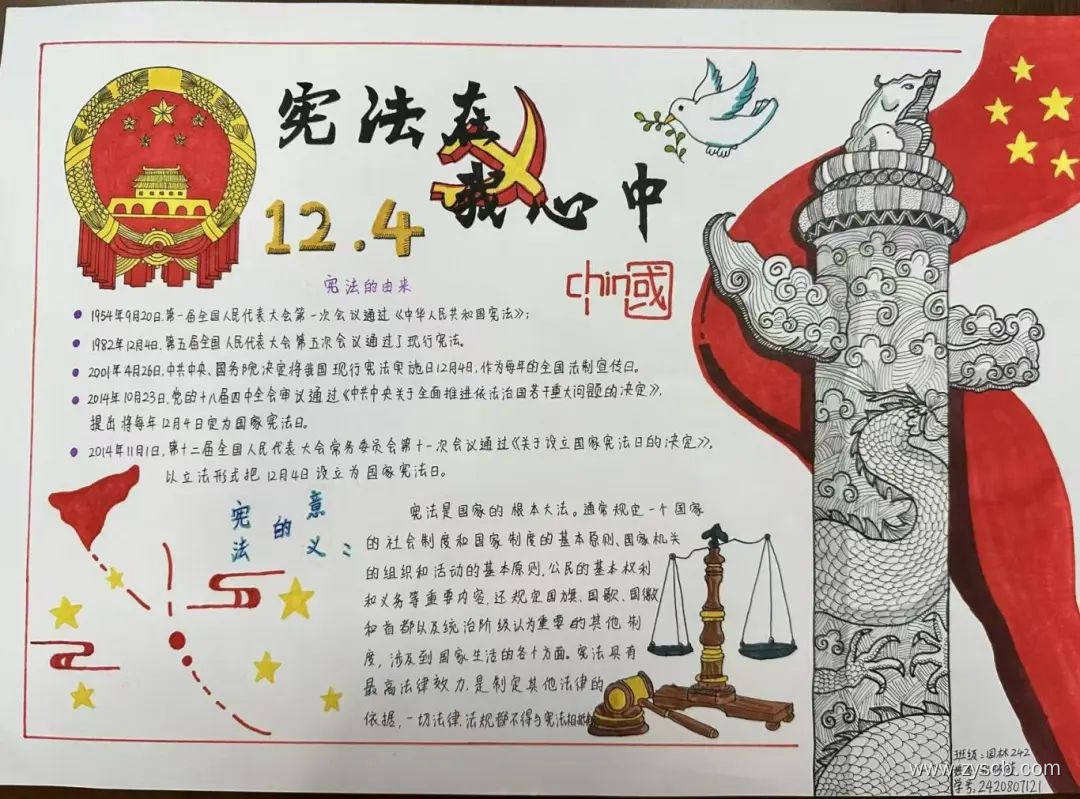 宪法在
我心中
12.4
chin国
宪法的由来
1954年9月20日,第一届全国人民代表大会第一次会议通过《中华人民共和国宪法》;
1982年12月4日,第五届全国人民代表大会第五次会议通过了现行宪法。
2001年4月26日,中共中央、国务院决定将我国现行宪法实施日12月4日,作为每年的全国法制宣传日。
2014年10月23日,党的十八届四中全会审议通过《中共中央关于全面推进依法治国若干重大问题的决定》,
提出将每年12月4日定为国家宪法日。
2014年11月1日,第十二届全国人民代表大会常务委员会第十一次会议通过《关于设立国家宪法日的决定》,
以立法形式把12月4日设立为国家宪法日。
宪法的意义:
宪法是国家的根本大法。通常规定一个国家
的社会制度和国家制度的基本原则、国家机关
的组织和活动的基本原则,公民的基本权利
和义务等重要内容,还规定国旗、国歌、国徽
和首都以及统治阶级认为重要的其他制
度,涉及到国家生活的各个方面。宪法具有
最高法律效力,是制定其他法律的
依据,一切法律、法规都不得与宪法相抵触
班级:园林242
www.zyscb.com
学号:2420807121